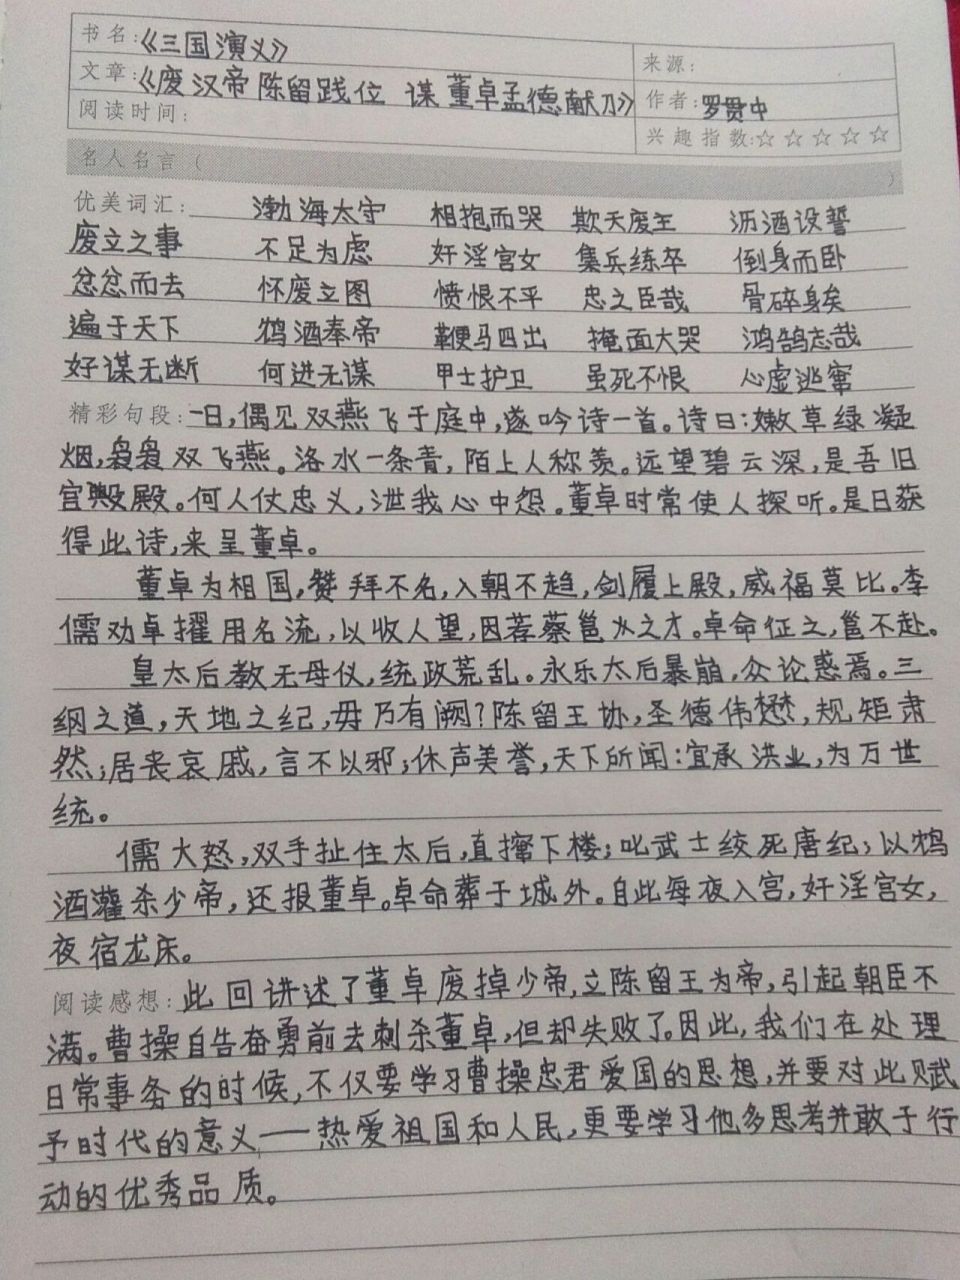 书名:《三国演义》
来源:
文章:《废汉帝陈留践位 谋董卓孟德献刀》
作者:罗贯中
阅读时间:
兴趣指数:☆☆☆☆☆
名人名言( )
优美词汇: 渤海太守 相抱而哭 欺天废主 沥酒设誓
废立之事 不足为虑 奸淫宫女 集兵练卒 倒身而卧
忿忿而去 怀废立图 愤恨不平 忠之臣哉 骨碎身矣
遍于天下 鸩酒奉帝 鞭马四出 掩面大哭 鸿鹄志哉
好谋无断 何进无谋 甲士护卫 虽死不恨 心虚逃窜
精彩句段:一日,偶见双燕飞于庭中,遂吟诗一首。诗曰:嫩草绿凝
烟,袅袅双飞燕。洛水一条青,陌上人称羡。远望碧云深,是吾旧
宫殿。何人仗忠义,泄我心中怨。董卓时常使人探听。是日获
得此诗,来呈董卓。
董卓为相国,赞拜不名,入朝不趋,剑履上殿,威福莫比。李
儒劝卓擢用名流,以收人望,因荐蔡邕之才。卓命征之,邕不赴。
皇太后教无母仪,统政荒乱。永乐太后暴崩,众论惑焉。三
纲之道,天地之纪,毋乃有阙?陈留王协,圣德伟懋,规矩肃
然;居丧哀戚,言不以邪;休声美誉,天下所闻:宜承洪业,为万世
统。
儒大怒,双手扯住太后,直撺下楼;叱武士绞死唐纪;以鸩
酒灌杀少帝,还报董卓。卓命葬于城外。自此每夜入宫,奸淫宫女,
夜宿龙床。
阅读感想:此回讲述了董卓废掉少帝,立陈留王为帝,引起朝臣不
满。曹操自告奋勇前去刺杀董卓,但却失败了。因此,我们在处理
日常事务的时候,不仅要学习曹操忠君爱国的思想,并要对此赋
予时代的意义——热爱祖国和人民,更要学习他多思考并敢于行
动的优秀品质。